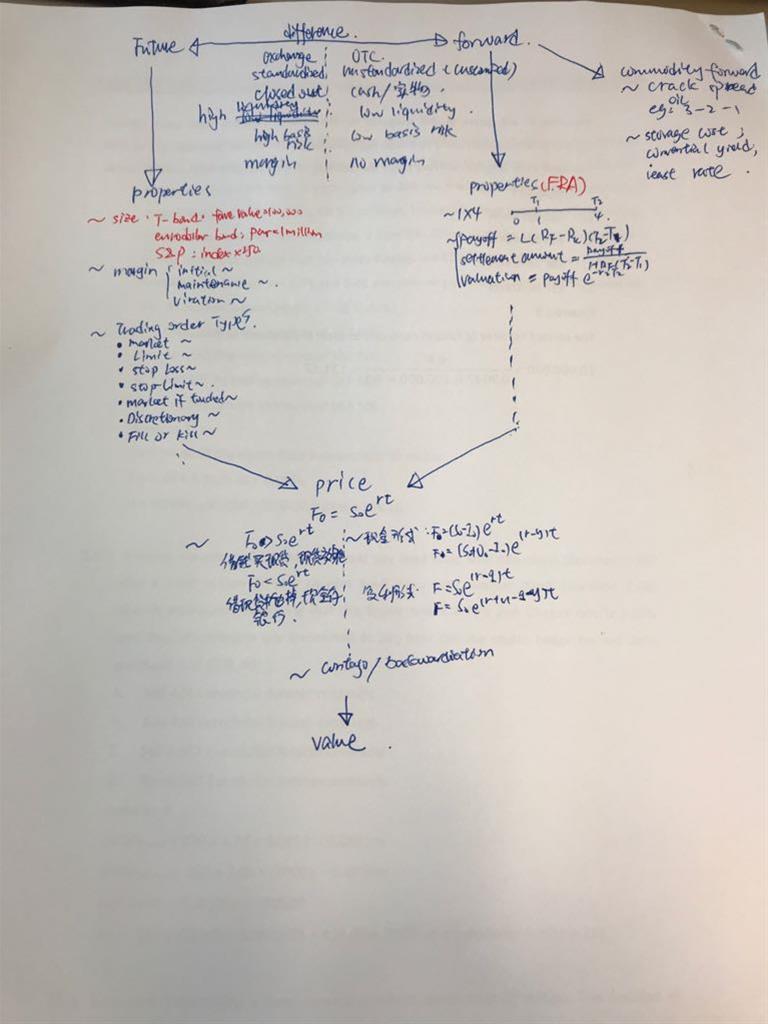 difference.
Future
forward.
exchange OTC.
standardized unstandardized (customized)
closed out cash/实物.
high liquidity low liquidity.
high basis risk low basis risk
margin no margin
commodity forward
~ crack spread
eg: oil 3-2-1
~ storage cost;
yield,
lease rate.
properties
~ size · T-bond: face value=100,000
eurodollar bond: par=1million
S&P: index×250
~ margin initial ~
maintenance ~.
viration ~
~ Trading order Types.
• market ~
• Limit ~
• stop Loss ~
• stop-limit ~.
• market if touched ~
• Discretionary ~
• Fill or kill ~
properties (FRA)
~ 1×4 T1 T2
0 1 4.
~ payoff = L(RF-RK)(T2-T1)
settlement amount = payoff / 1+RF(T2-T1)
valuation = payoff e^-r2T2
price
F0 = S0e^rt
~ F0>S0e^rt
借钱买现货,
F0<S0e^rt
银行.
~ 现金形式: F0=(S0-I0)e^rt
F0=(S0+U0-I0)e^(r-y)t
实物形式: F=S0e^(r-q)t
F=S0e^(r+u-q-y)t
~ contago/backwardiation
value.